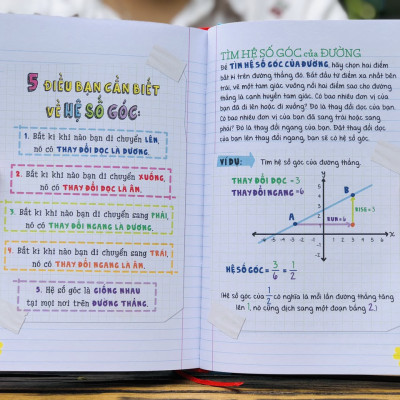 5 ĐIỀU BẠN CẦN BIẾT
VỀ HỆ SỐ GÓC:
1. Bất kì khi nào bạn di chuyển LÊN,
nó có THAY ĐỔI DỌC LÀ DƯƠNG.
2. Bất kì khi nào bạn di chuyển XUỐNG,
nó có THAY ĐỔI DỌC LÀ ÂM.
3. Bất kì khi nào bạn di chuyển sang PHẢI,
nó có THAY ĐỔI NGANG LÀ DƯƠNG.
4. Bất kì khi nào bạn di chuyển sang TRÁI,
nó có THAY ĐỔI NGANG LÀ ÂM.
5. Hệ số góc là GIỐNG NHAU
tại mọi nơi trên ĐƯỜNG THẲNG.
TÌM HỆ SỐ GÓC của ĐƯỜNG
Để TÌM HỆ SỐ GÓC CỦA ĐƯỜNG, hãy chọn hai điểm
bất kì trên đường thẳng đó. Bắt đầu từ điểm xa nhất bên
trái, vẽ một tam giác vuông nối hai điểm sao cho đường
thẳng là cạnh huyền tam giác. Có bao nhiêu đơn vị của
bạn đã đi lên hoặc đi xuống? Đó là thay đổi dọc của bạn.
Có bao nhiêu đơn vị của bạn đã sang trái hoặc sang
phải? Đó là thay đổi ngang của bạn. Đặt thay đổi dọc
của bạn lên thay đổi ngang, bạn sẽ có hệ số góc.
VÍ DỤ: Tìm hệ số góc của đường thẳng.
THAY ĐỔI DỌC = 3
THAY ĐỔI NGANG = 6
y
B
RISE = 3
A
RUN = 6
x
HỆ SỐ GÓC = 3/6 = 1/2
(Hệ số góc của 1/2 có nghĩa là mỗi lần đường thẳng tăng
lên 1, nó cũng dịch sang một đoạn bằng 2.)